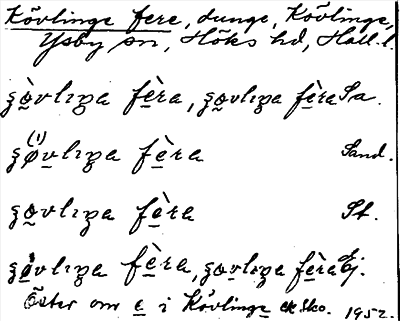 Kövlinge fere, dunge, Kövlinge,
Ysby sn, Höks hd, Hall. l.
ʒǫ̀vlıŋa fèra, ʒǫvlıŋa fèra Sa.
ʒø̀vlıŋa fèra Sand.
ʒǫvlıŋa fèra St.
ʒǫ̀vlıŋa fèra, ʒǫvlıŋa fèra Ej.
Öster om e i Kövlinge 1952.